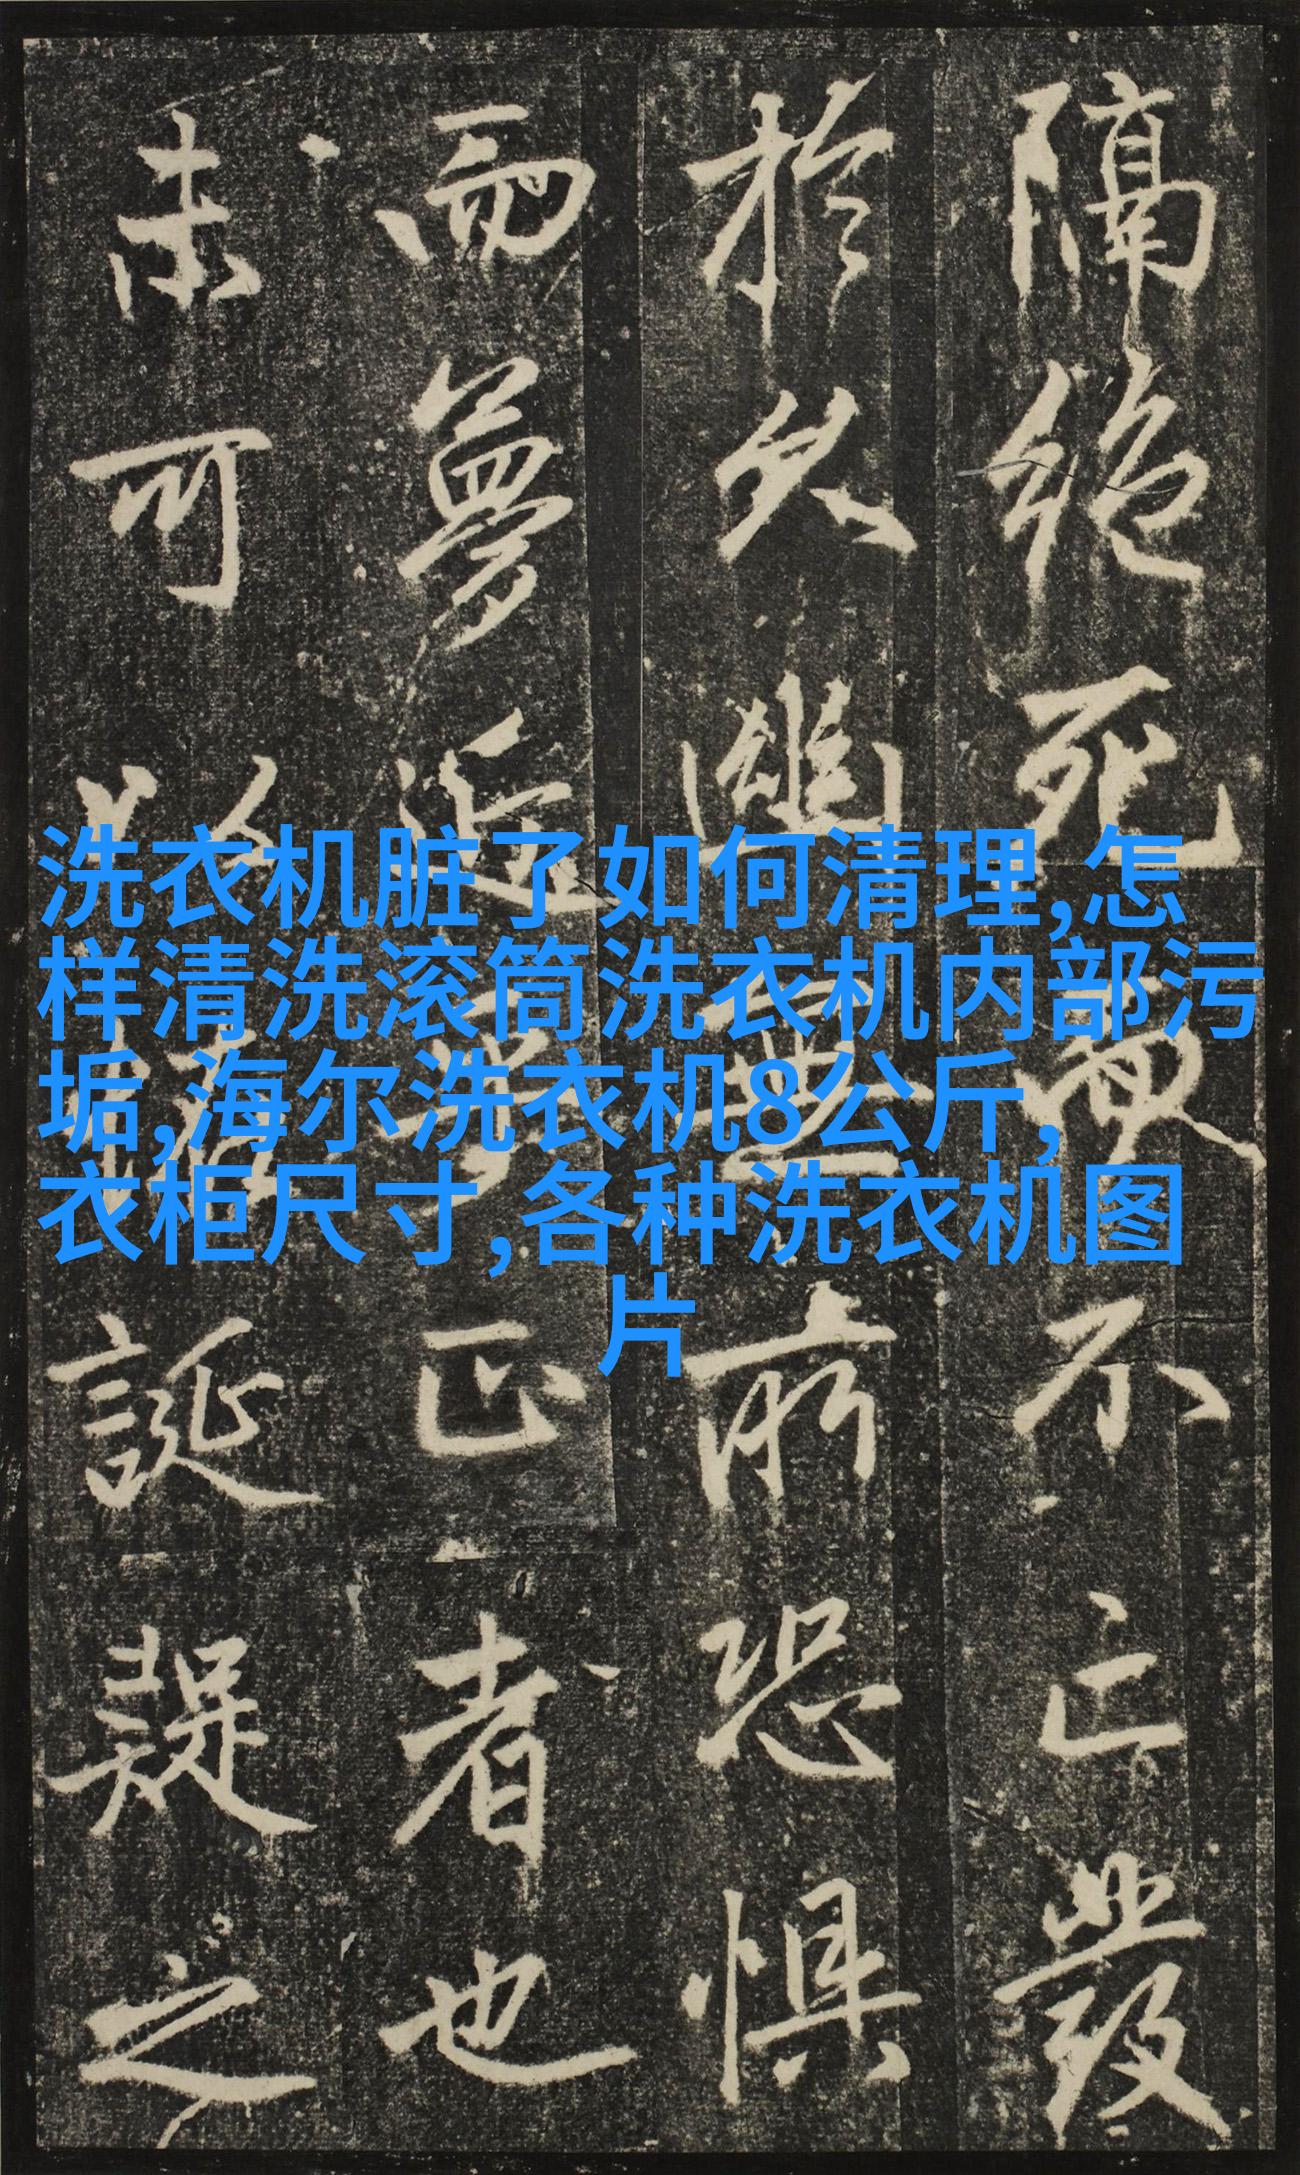 洗衣机脏了如何清理,怎
样清洗滚筒洗衣机内部污
垢,海尔洗衣机8公斤,
衣柜尺寸,各种洗衣机图
片
隔絕死而不亡發
於久幽無所恐懼
而夢近乎正者也
未可以誕疑之